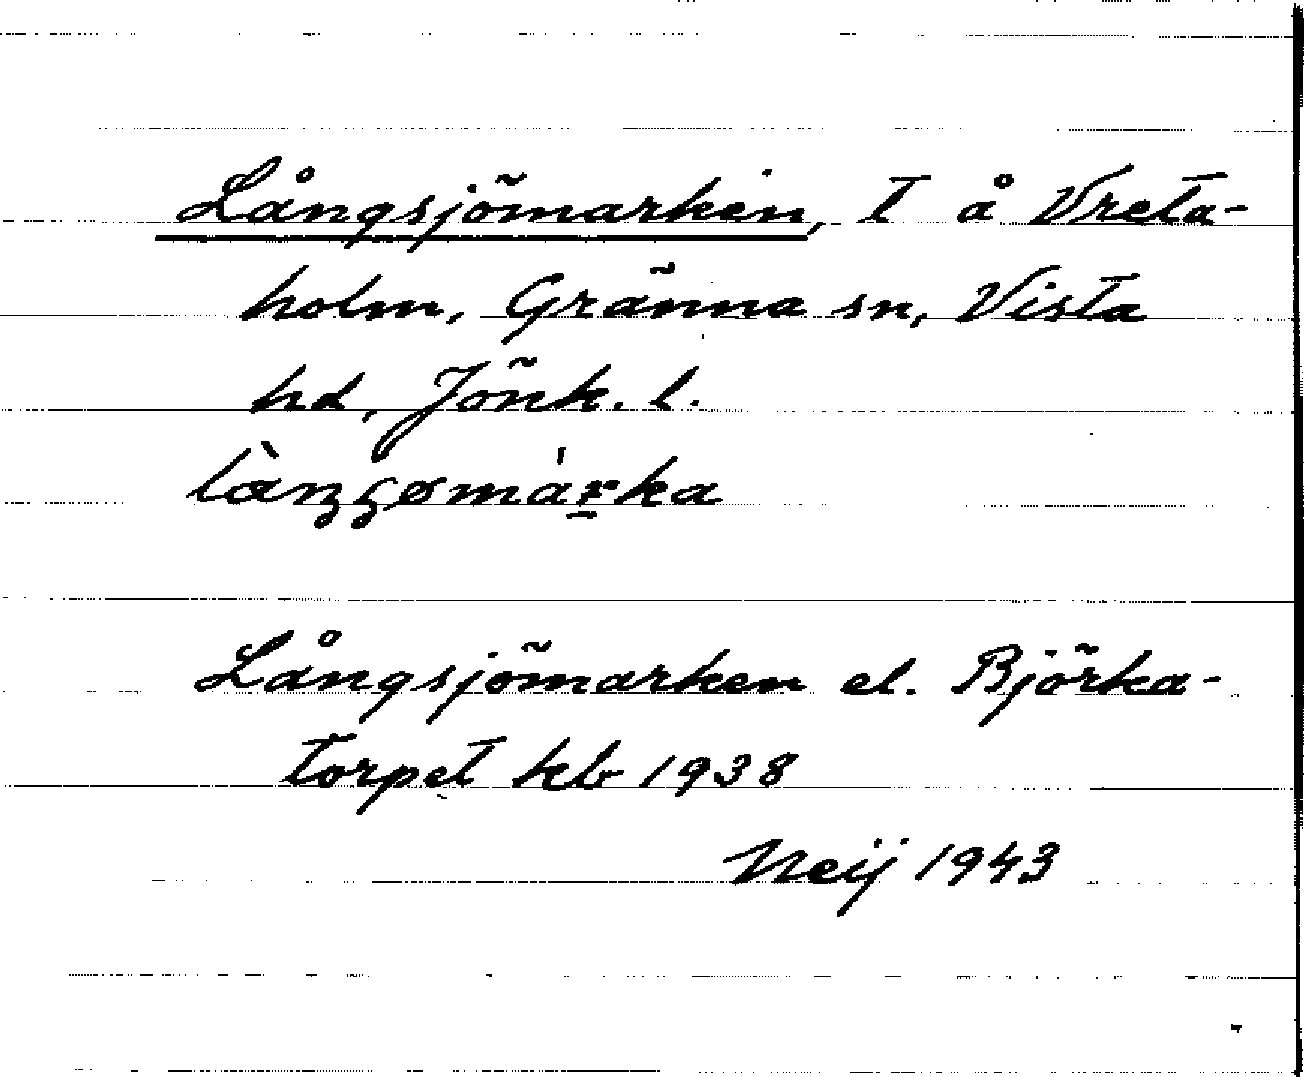 Långsjömarken, T å Vreta-
holm, Gränna sn, Vista
hd, Jönk. l.
Långsjömarken el. Björka-
torpet kb 1938
Neij 1943